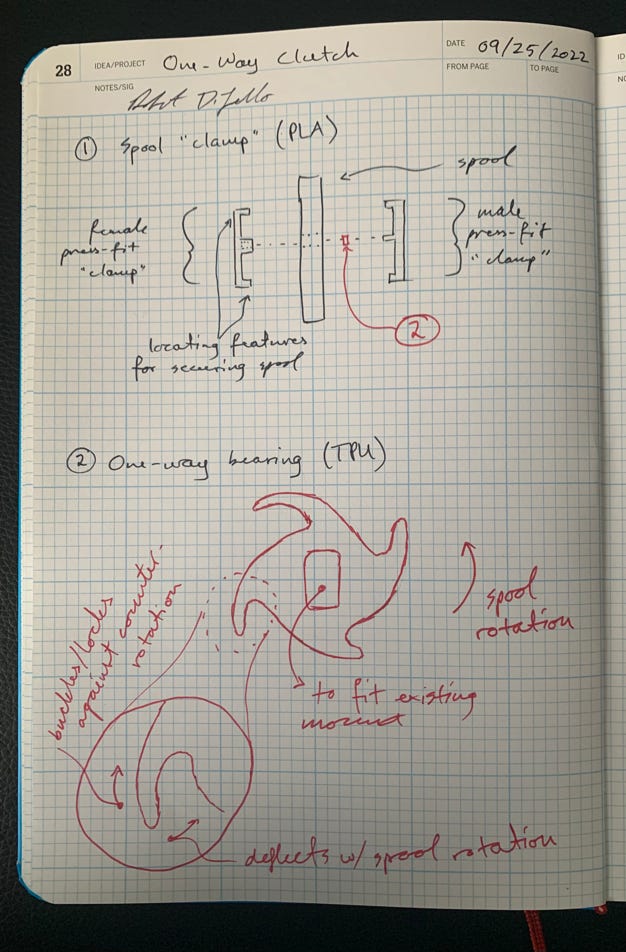 28
IDEA/PROJECT One-Way Clutch
DATE 09/25/2022
FROM PAGE TO PAGE
NOTES/SIG
① Spool "clamp" (PLA)
spool
female
press-fit
"clamp"
male
press-fit
"clamp"
2
locating features
for securing spool
② One-way bearing (TPU)
buckles/locks
against counter-
rotation
spool
rotation
to fit existing
mount
deflects w/ spool rotation
ID